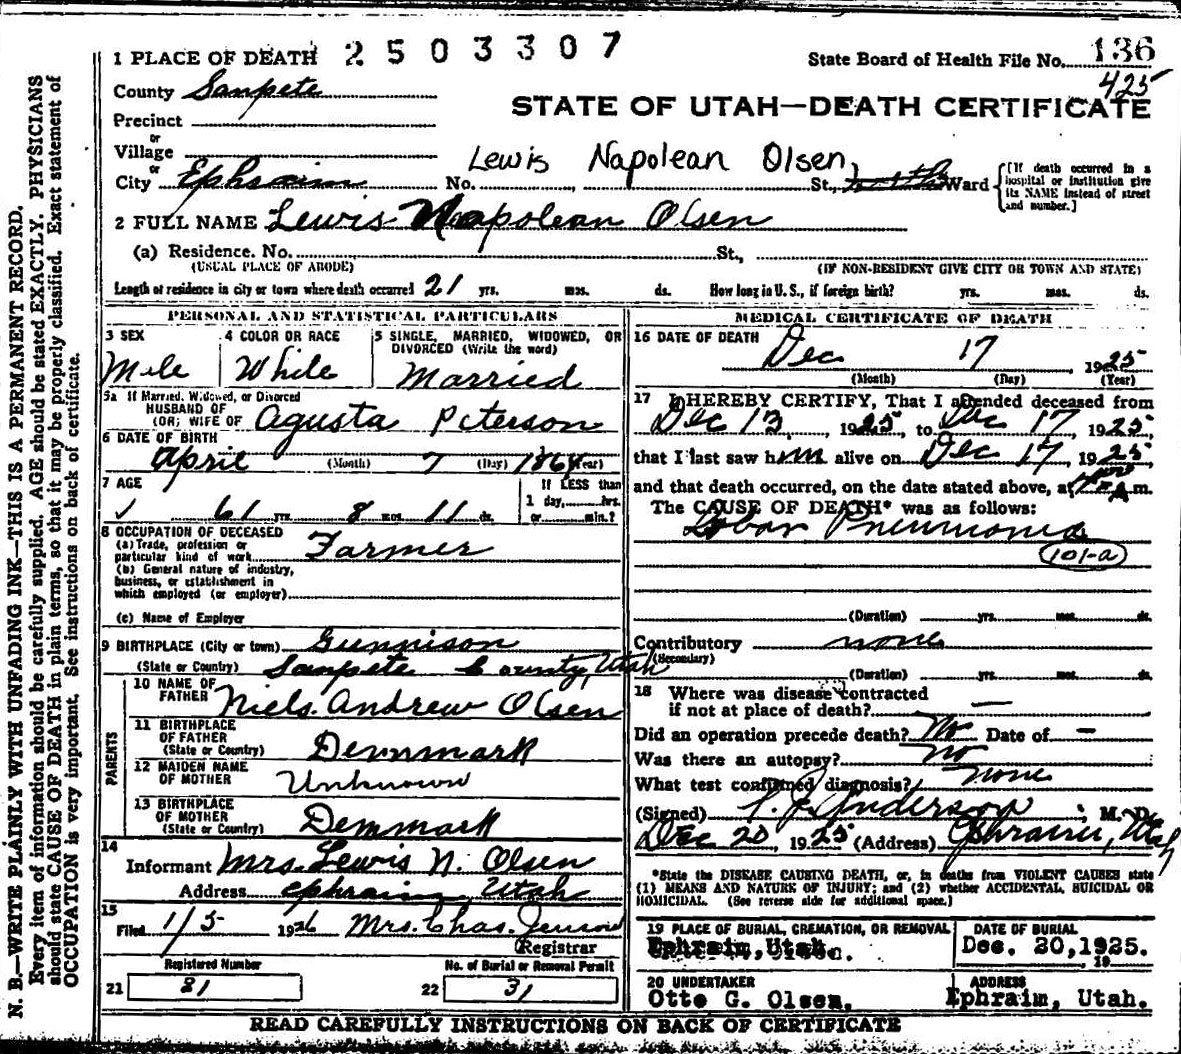 N. B.—WRITE PLAINLY WITH UNFADING INK—THIS IS A PERMANENT RECORD.
Every item of information should be carefully supplied. AGE should be stated EXACTLY. PHYSICIANS
should state CAUSE OF DEATH in plain terms, so that it may be properly classified. Exact statement of
OCCUPATION is very important. See instructions on back of certificate.
1 PLACE OF DEATH 2503307
State Board of Health File No. 136
425
County Sanpete
STATE OF UTAH—DEATH CERTIFICATE
Precinct
or
Village
Lewis Napolean Olsen
or
City Ephraim No. St., Ward
[If death occurred in a
hospital or institution give
its NAME instead of street
and number.]
2 FULL NAME Lewis Napolean Olsen
(a) Residence. No. St.,
(USUAL PLACE OF ABODE) (IF NON-RESIDENT GIVE CITY OR TOWN AND STATE)
Length of residence in city or town where death occurred 21 yrs. mos. ds. How long in U. S., if foreign birth? yrs. mos. ds.
PERSONAL AND STATISTICAL PARTICULARS
3 SEX 4 COLOR OR RACE 5 SINGLE, MARRIED, WIDOWED, OR
DIVORCED (Write the word)
Male White Married
5a If Married, Widowed, or Divorced
HUSBAND OF
(OR) WIFE OF Agusta Peterson
6 DATE OF BIRTH
April (Month) 7 (Day) 1864 (Year)
7 AGE If LESS than
1 day, hrs.
61 yrs. 8 mos. 11 ds. or min.?
8 OCCUPATION OF DECEASED
(a) Trade, profession or
particular kind of work Farmer
(b) General nature of industry,
business, or establishment in
which employed (or employer)
(c) Name of Employer
9 BIRTHPLACE (City or town) Gunnison
(State or Country) Sanpete County, Utah
PARENTS
10 NAME OF
FATHER Niels Andrew Olsen
11 BIRTHPLACE
OF FATHER
(State or Country) Denmark
12 MAIDEN NAME
OF MOTHER Unknown
13 BIRTHPLACE
OF MOTHER
(State or Country) Denmark
14
Informant Mrs. Lewis N. Olsen
Address Ephraim, Utah
15
Filed 1/5 1926 Mrs. Chas. Jensen
Registrar
Registered Number No. of Burial or Removal Permit
21 81 22 31
MEDICAL CERTIFICATE OF DEATH
16 DATE OF DEATH
Dec 17 1925
(Month) (Day) (Year)
17 I HEREBY CERTIFY, That I attended deceased from
Dec 13, 1925, to Dec 17, 1925,
that I last saw him alive on Dec 17, 1925,
and that death occurred, on the date stated above, at A m.
The CAUSE OF DEATH* was as follows:
Lobar Pneumonia
101-a
(Duration) yrs. mos. ds.
Contributory none
(Secondary)
(Duration) yrs. mos. ds.
18 Where was disease contracted
if not at place of death? —
Did an operation precede death? No Date of —
Was there an autopsy? no
What test confirmed diagnosis? none
(Signed) Anderson, M. D.
Dec 20, 1925 (Address) Ephraim, Utah
*State the DISEASE CAUSING DEATH, or, in deaths from VIOLENT CAUSES state
(1) MEANS AND NATURE OF INJURY; and (2) whether ACCIDENTAL, SUICIDAL OR
HOMICIDAL. (See reverse side for additional space.)
19 PLACE OF BURIAL, CREMATION, OR REMOVAL DATE OF BURIAL
Ephraim, Utah Dec. 20, 1925.
19
20 UNDERTAKER ADDRESS
Otto G. Olsen. Ephraim, Utah.
READ CAREFULLY INSTRUCTIONS ON BACK OF CERTIFICATE